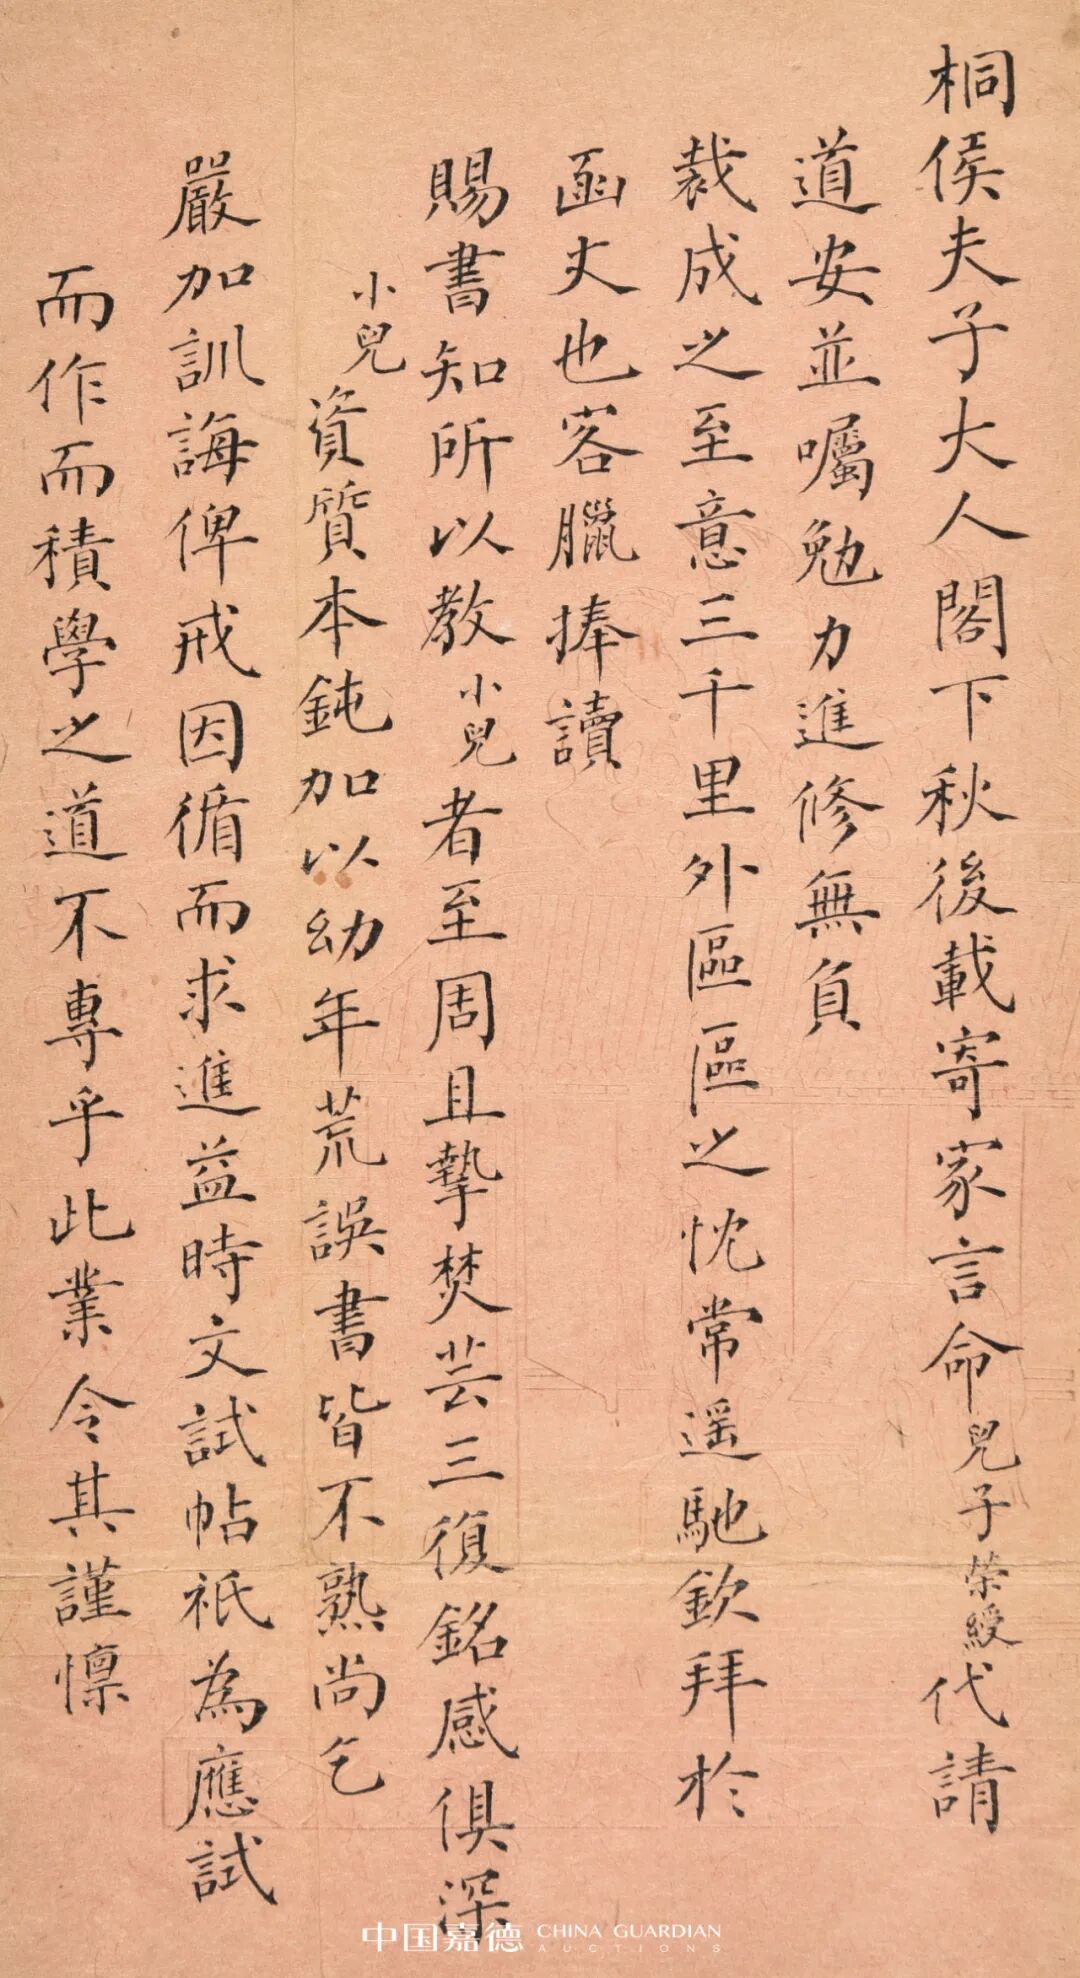 桐侯夫子大人閣下秋後載寄家言命兒子荣綬代請
道安並囑勉力進修無負
裁成之至意三千里外區區之忱常遥馳欽拜於
函丈也客臘捧讀
賜書知所以教小兒者至周且摯焚芸三復銘感俱深
小兒資質本鈍加以幼年荒誤書皆不熟尚乞
嚴加訓誨俾戒因循而求進益時文試帖祇為應試
而作而積學之道不專乎此業令其謹懍
中国嘉德 CHINA GUARDIAN
AUCTIONS